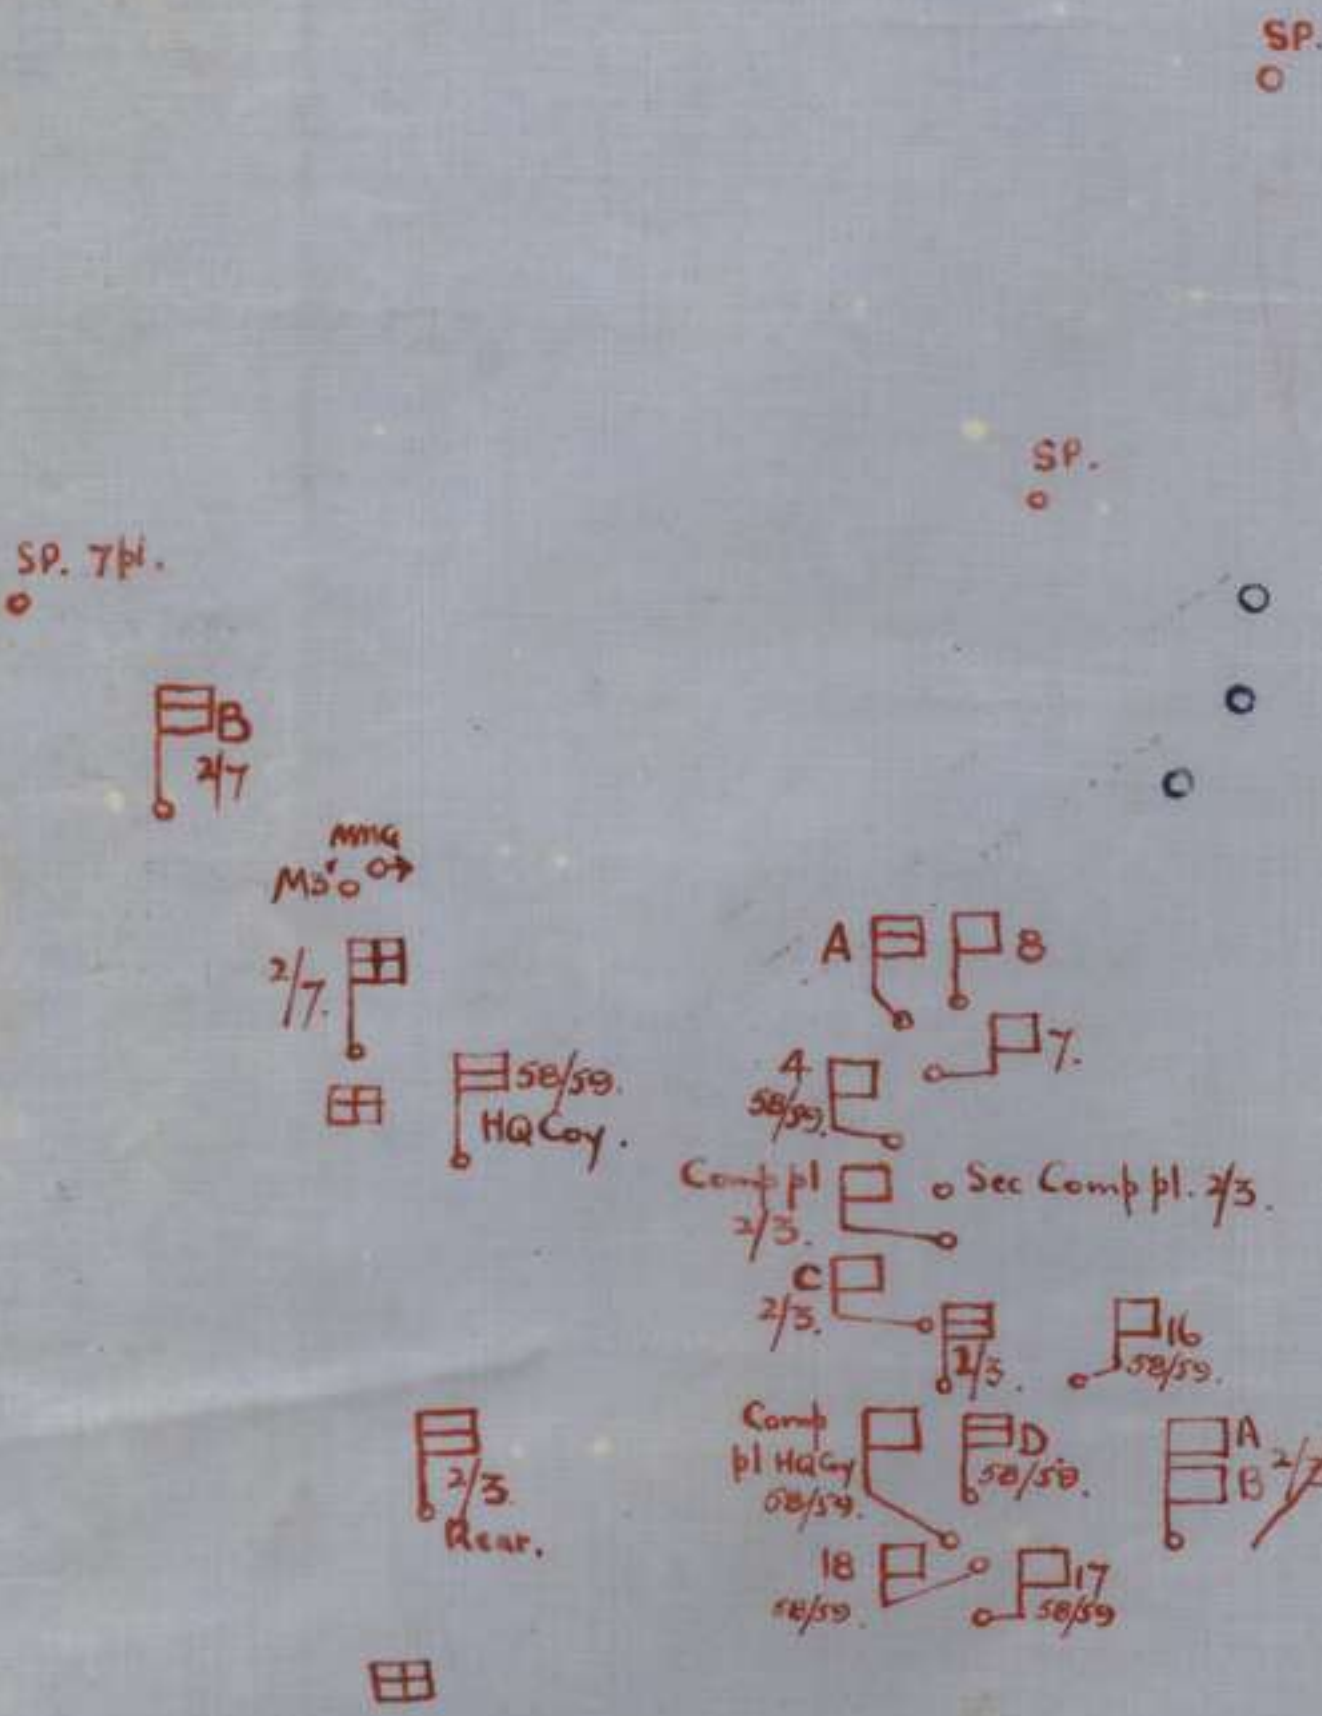 SP.
SP.
SP. 7 pl.
B
2/7
MMG
M3"
2/7.
58/59.
HQ Coy.
A
8
7.
4
58/59.
Comp pl
2/3.
Sec Comp pl. 2/3.
C
2/3.
2/3.
16
58/59.
2/3
Rear.
Comp
pl HQ Coy
58/59.
D
58/59.
A
B
18
58/59.
17
58/59